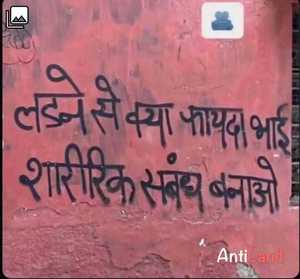 लडने से क्या फायदा भाई
शारीरिक संबंध बनाओ
Anti